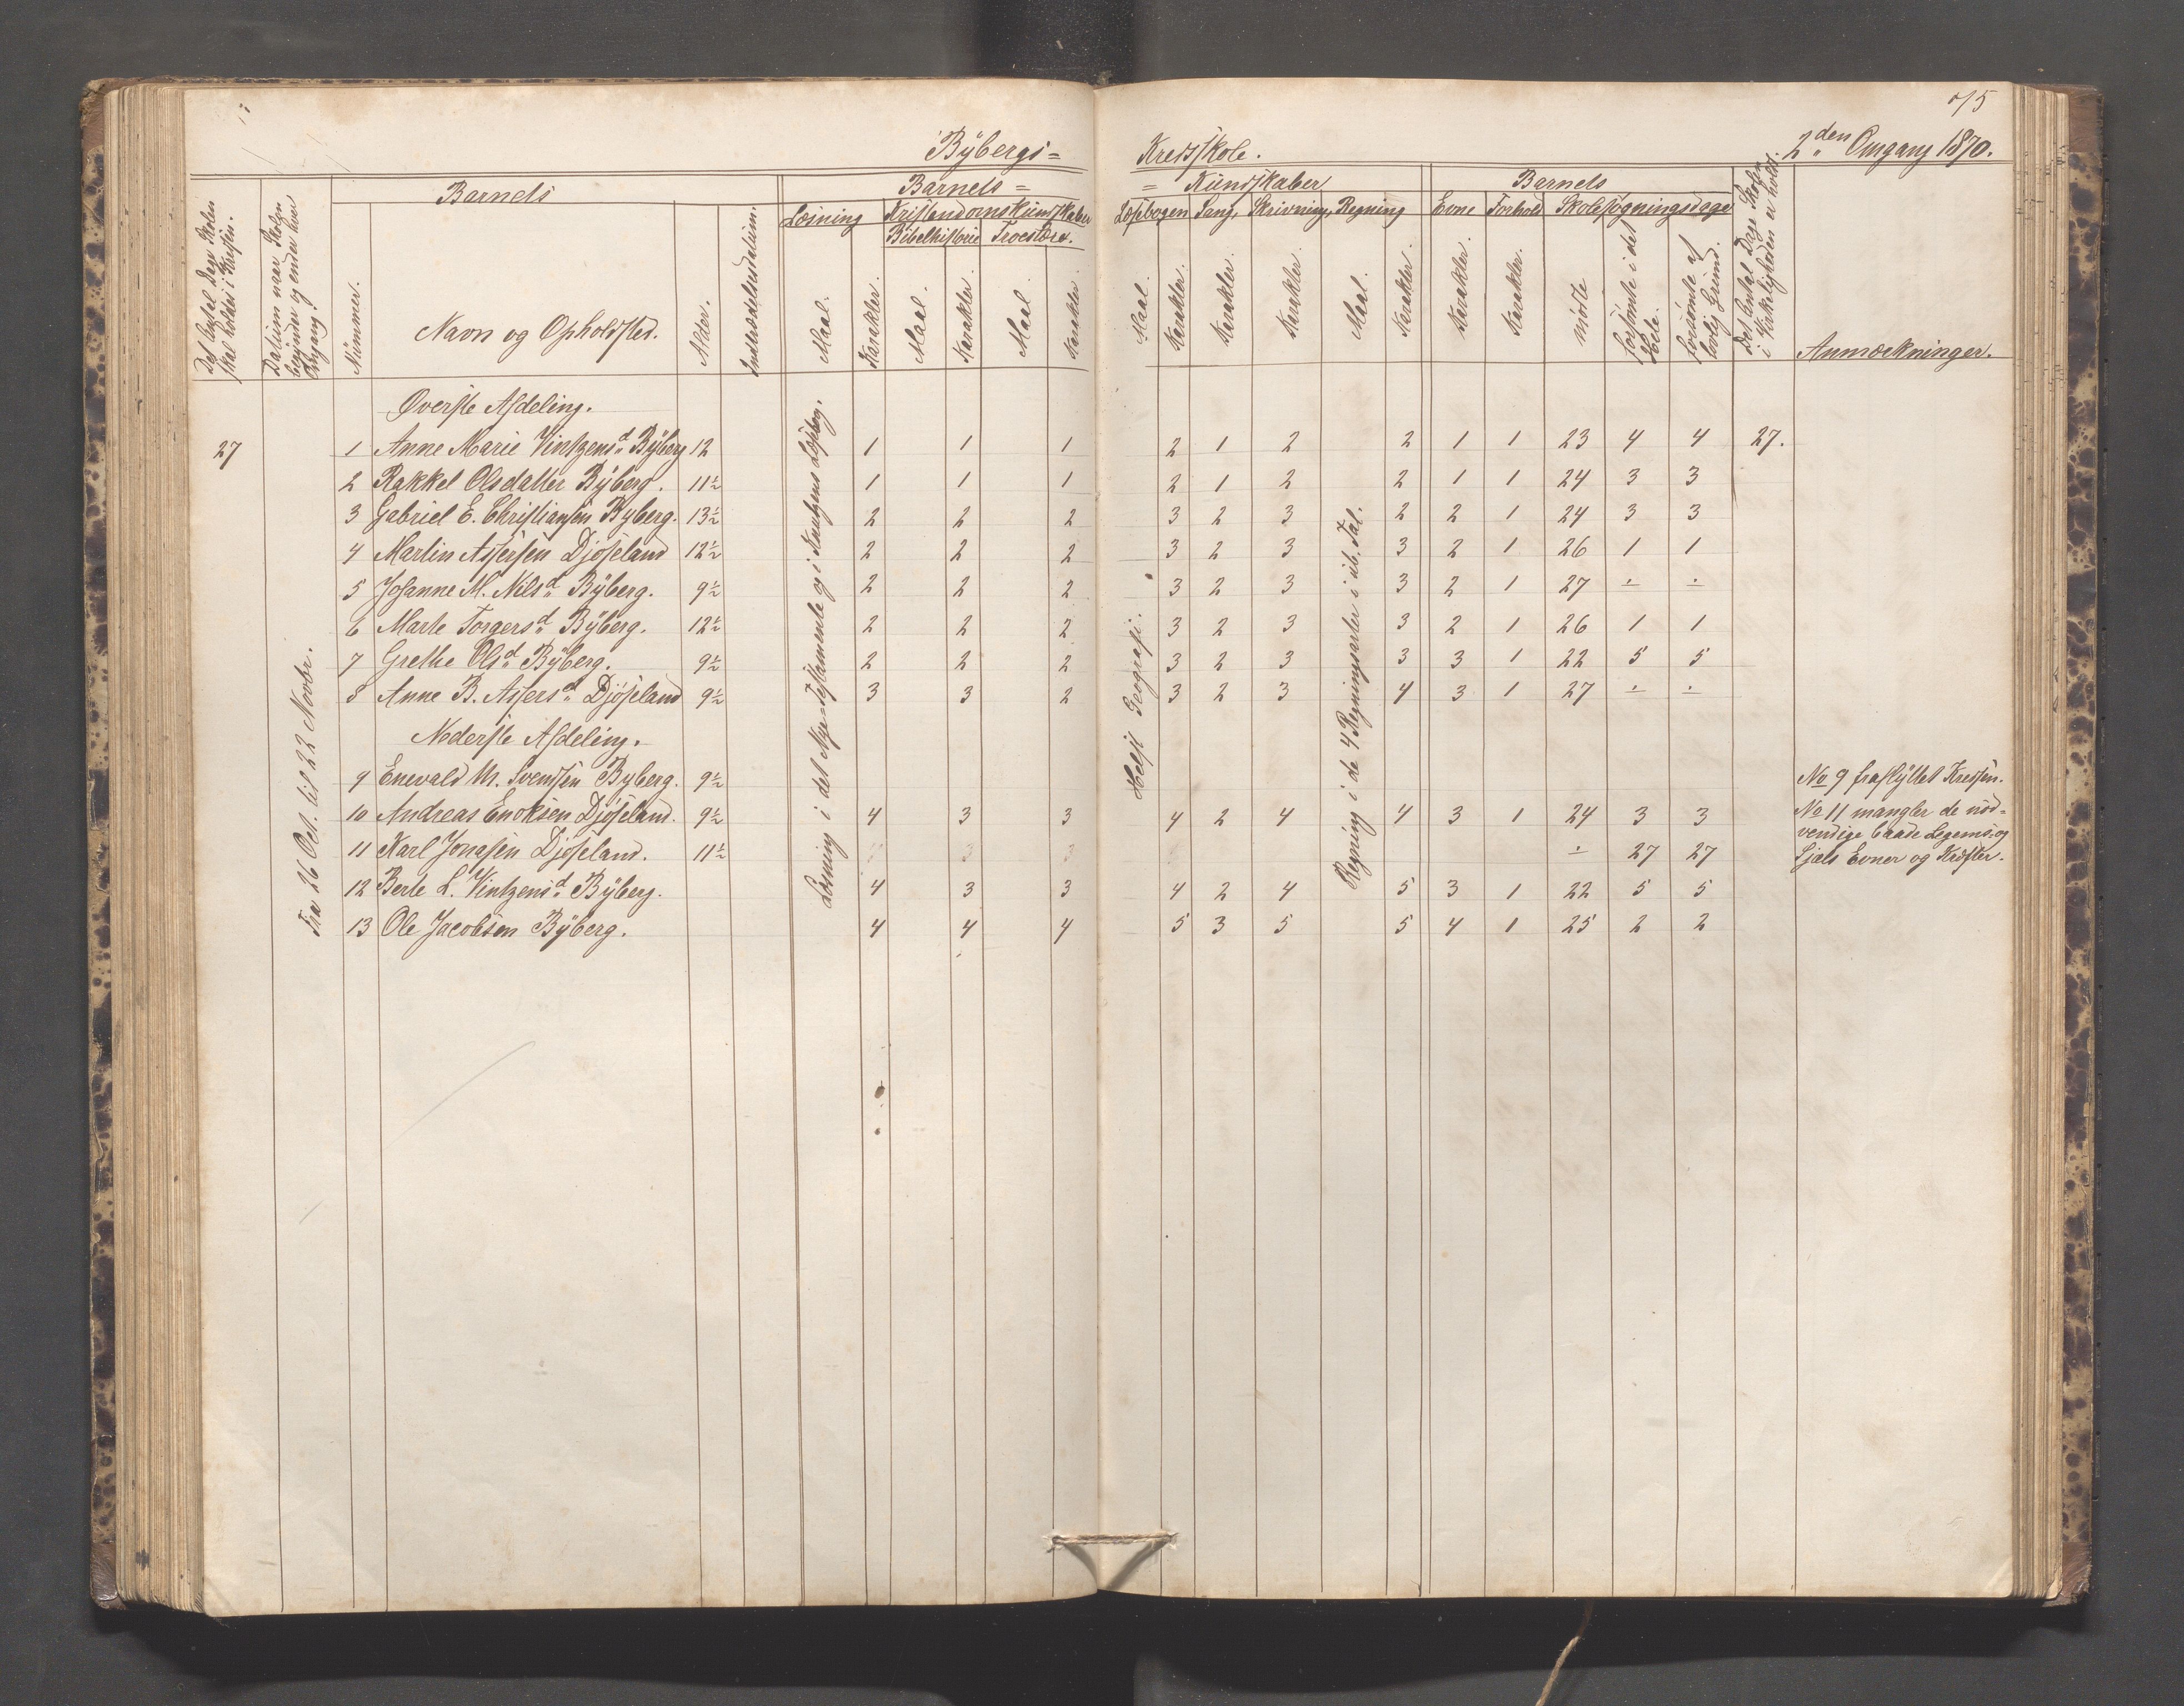 75
Bÿbergs= Kredsskole. 2den Omgang 1870.
Det Antal Dage Skolen skal holdes i Kredsen.
Datum naar Skolen begynder og ender hver Omgang.
Barnets
Nummer.
Navn og Opholdssted.
Alder.
Indtrædelsesdatum.
Barnets= =Kundskaber
Læsning
Maal.
Karakter.
Kristendomskundskaber
Bibelhistorie
Maal.
Karakter.
Troeslære.
Maal.
Karakter.
Læsebogen
Maal.
Karakter.
Sang,
Karakter.
Skrivning,
Karakter.
Regning
Maal.
Karakter.
Barnets
Evne
Karakter.
Forhold
Karakter.
Skolesøgningsdage
mødte
forsømte i det Hele.
forsømte af lovlig Grund.
Det Antal Dage Skolen i Virkeligheden er holdt.
Anmærkninger.
Fra 26 Oct. til 22 Novbr.
Læsning i det Nye-Testamente og i Knutzens Læsebog.
Helst Geografi.
Regning i de 4 Regningsarter i ub. Tal.
Øverste Afdeling.
27 1 Anne Marie Vintzensd. Bÿberg 12 1 1 1 2 1 2 2 1 1 23 4 4 27.
2 Rakkel Olsdatter Bÿberg. 11½ 1 1 1 2 1 2 2 1 1 24 3 3
3 Gabriel E. Christiansen Byberg. 13½ 2 2 2 3 2 3 2 2 1 24 3 3
4 Martin Assersen Djøseland 12½ 2 2 2 3 2 3 3 2 1 26 1 1
5 Johanne M. Nilsd. Bÿberg. 9½ 2 2 2 3 2 3 3 2 1 27 ÷ ÷
6 Marte Torgersd. Bÿberg. 12½ 2 2 2 3 2 3 3 2 1 26 1 1
7 Grethe Olsd. Bÿberg. 9½ 2 2 2 3 2 3 3 3 1 22 5 5
8 Anne B. Assersd. Djøseland 9½ 3 3 2 3 2 3 4 3 1 27 ÷ ÷
Nederste Afdeling.
9 Enevald M. Svendsen Byberg. 9½ No 9 fraflÿttet Kredsen.
10 Andreas Enoksen Djøseland. 9½ 4 3 3 4 2 4 4 3 1 24 3 3 No 11 mangler de nød=
vendige baade Legems- og
11 Karl Jonasen Djøseland. 11½ ÷ 27 27 Sjæls Evner og Kræfter.
12 Berte L. Vintzensd. Bÿberg. 4 3 3 4 2 4 5 3 1 22 5 5
13 Ole Jacobsen Bÿberg. 4 4 4 5 3 5 5 4 1 25 2 2